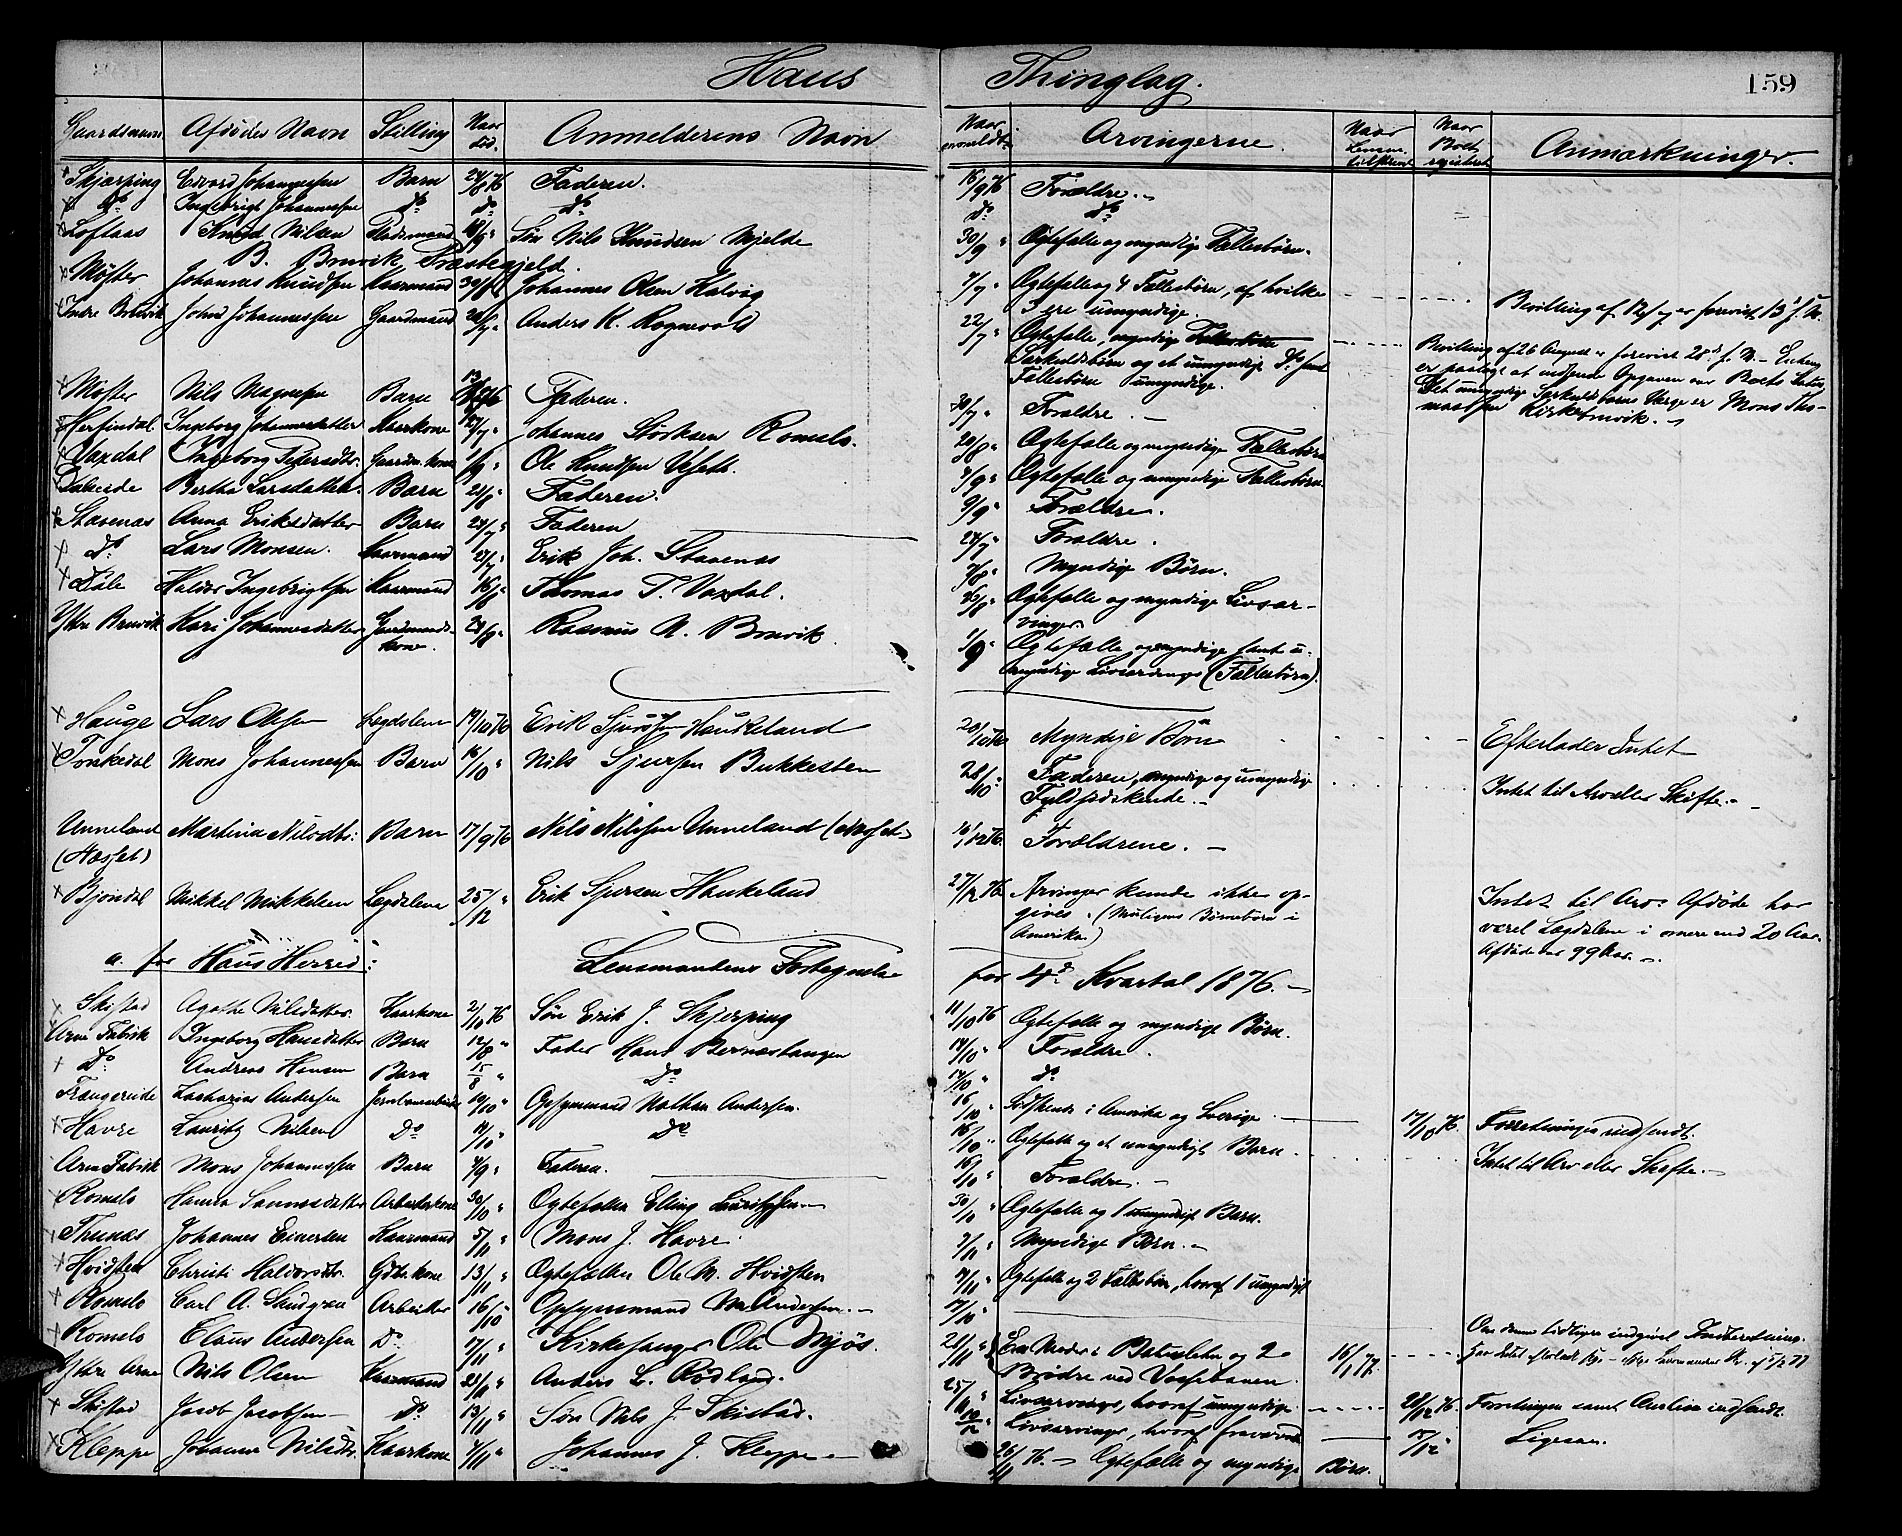 Haus Thinglag. 159
Gaardsnavn Afdødes Navn Stilling Naar død. Anmelderens Navn Naar anmeldt. Arvingerne. Naar Boet registreret Anmærkninger.
Skjerping Edvard Johannessen Barn 24/8 76 Faderen. 16/9 76 Forældre. –
Do Ingebrigt Johannessen Do Do Do Do Do
Loftaas Knud Nilsen Pladsmand 18/9 " Søn Nils Knudsen Mjelde 30/9 " Ægtefælle og myndige Fællesbørn.
B. Bruvik Præstegjeld.
Møster Johannes Knudsen Kaarmand 30/6 Johannes Olsen Halvig 7/7 " Ægtefælle og 4 Fællesbørn, af hvilke
3 ere umyndige.
Bevilling af 12/7 er forevist 13 f. M.
Indre Bruvik John Johannessen Gaardmand Anders K. Rognevold 22/7 " Ægtefælle, myndige Fællesbørn
Særkuldsbørn og et umyndig Do samt
Fællesbørn umyndige.
Bevilling af 26 August er forevist 28d f. M. – Enken
er paalagt at indsende Opgaven over Boets Status
Det umyndige Særkuldbarns Værge er Mons Tho-
massen Kirkebruvik. –
Møster Nils Magnesen Barn Faderen. 30/7 " Forældre. –
Herfindal Ingeborg Johannesdatter Kaarkone 12/7 " Johannes Størksen Romslo. 20/8 " Ægtefælle og myndige Fællesbørn
Vaxdal Ingeborg Pedersdtr. Gaardm. kone 1/9 " Ole Knudsen 4/9 " Ægtefælle og umyndige Fællesbørn.
Dalseide Bertha Larsdatter. Barn 21/8 " Faderen. 9/9 " Forældre.
Stavenæs Anna Eriksdatter Barn 24/7 " Faderen 27/7 " Forældre.
Do Lars Monsen. Kaarmand 27/7 " Erik Joh. Stavenæs 7/8 " Myndige Børn.
Dale Haldor Ingebrigtsen Kaarmand 16/8 " Thomas T. Vaxdal. Ægtefælle og myndige Livsar-
vinger.
Ytre Bruvik Kari Johannesdatter Gaardmands- kone. Rasmus A. Bruvik. 1/9 " Ægtefælle og myndige samt u-
myndige Livsarvinger (Fællesbørn).
Hauge Lars Olsen Lægdslem 19/10 76 Erik Sjursen Haukeland 20/10 76 Myndige Børn Efterlader Intet
Torskedal Mons Johannessen Barn 16/10 " Nils Sjursen Bukkesten 28/10 " Faderen, myndige og umyndige
Fuldsødskende. – Intet til Arv eller Skifte. –
Unneland Martina Nilsdtr: Barn 17/9 76 Nils Nilssen Unneland (Hosset) 16/12 76. Forældrene. –
(Hosset)
Bjøndal Mikkel Mikkelsen Lægdslem 25/12 " Erik Sjursen Haukeland 27/12 76. Arvinger kunde ikke op-
gives. (Muligens Børnebørn i
Amerika.)
Intet til Arv. Afdøde har
været Lægdslem i omere end 20 Aar.
Afdøde var 99 Aar. –
a. for Haus Herred: Lensmandens Fortegnelse for 4de Kvartal 1876. –
Skistad Agathe Nilsdatter Kaarkone 2/10 76 Søn Erik J. Skjerping 11/10 76 Ægtefælle og myndige Børn.
Arne Fabrik Ingeborg Hansdatter Barn 12/8 " Fader Hans Bernastangen 14/10 " Forældre.
Do. Andreas Hansen Barn 15/8 " Do 14/10 " Do
Trængereide Zacharias Andersen Jernbanearbeider 10/10 " Opsynsmand Nathan Andersen. 16/10 " Sødskende i Amerika og Sverige. 17/10 76. Forretningen indsendt.
Havre Lauritz Nilsen Do 14/10 " Do 16/10 " Ægtefælle og et umyndigt Barn. Intet til Arv eller Skifte. –
Arne Fabrik Mons Johannessen Barn 4/9 " Faderen. 16/10 " Forældre. –
Romslo Hanna Arbeiderkone 30/10 " Ægtefælle Elling 30/10 " Ægtefælle og 1 umyndigt Barn.
Thunæs Johannes Einersen Kaarmand 5/11 " Mons J. Havre. 7/11 " Myndige Børn. –
Hvidsten Christi Haldorsdtr. Gdbr. kone 13/11 " Ægtefællen Ole M. Hvidsten Ægtefælle og 2 Fællesbørn, hvoraf 1 umyndigt
Romslo Carl A. Arbeider 16/10 " Opsynsmand N. Andersen. – 17/10 "
Romslo Claus Andersen Do. 17/11 " Kirkesanger Ole Mjøs. 21/11 " En Moder i og 2
Brødre ved Vossebanen. 16/1 77. Om denne tidligere indgivet Indberetning.
Ytre Arne Nils Olsen Kaarmand 23/11 " Anders L. Rødland. 25/11 " Livsarvinge, hvoraf umyndige
Skistad Jacob Jacobsen Do. 13/11 " Søn Nils J. Skistad. Livsarvinger, hvoraf fraværende 28/12 76. Forretningen samt Auction indsendt.
Kleppe Johanna Nilsdtr. Kaarkone 4/11 " Johannes J. Kleppe – 26/11 76. – Ægtefælle og myndige Børn. Ligesaa.